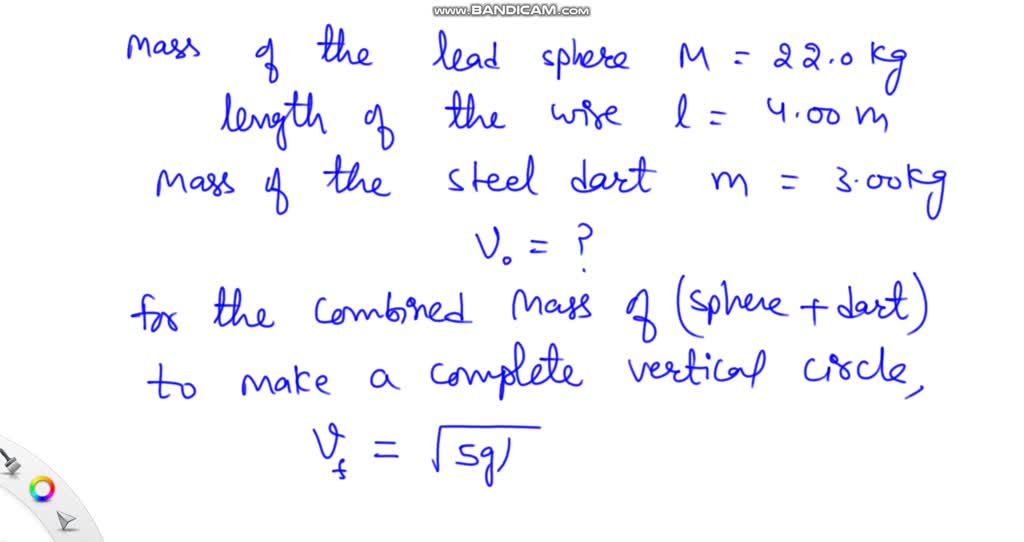 www.BANDICAM.com
Mass of the lead sphere M = 22.0 kg
length of the wire l = 4.00 m
Mass of the steel dart m = 3.00 kg
V₀ = ?
for the combined mass of (sphere + dart)
to make a complete vertical circle,
V_f = √5gl